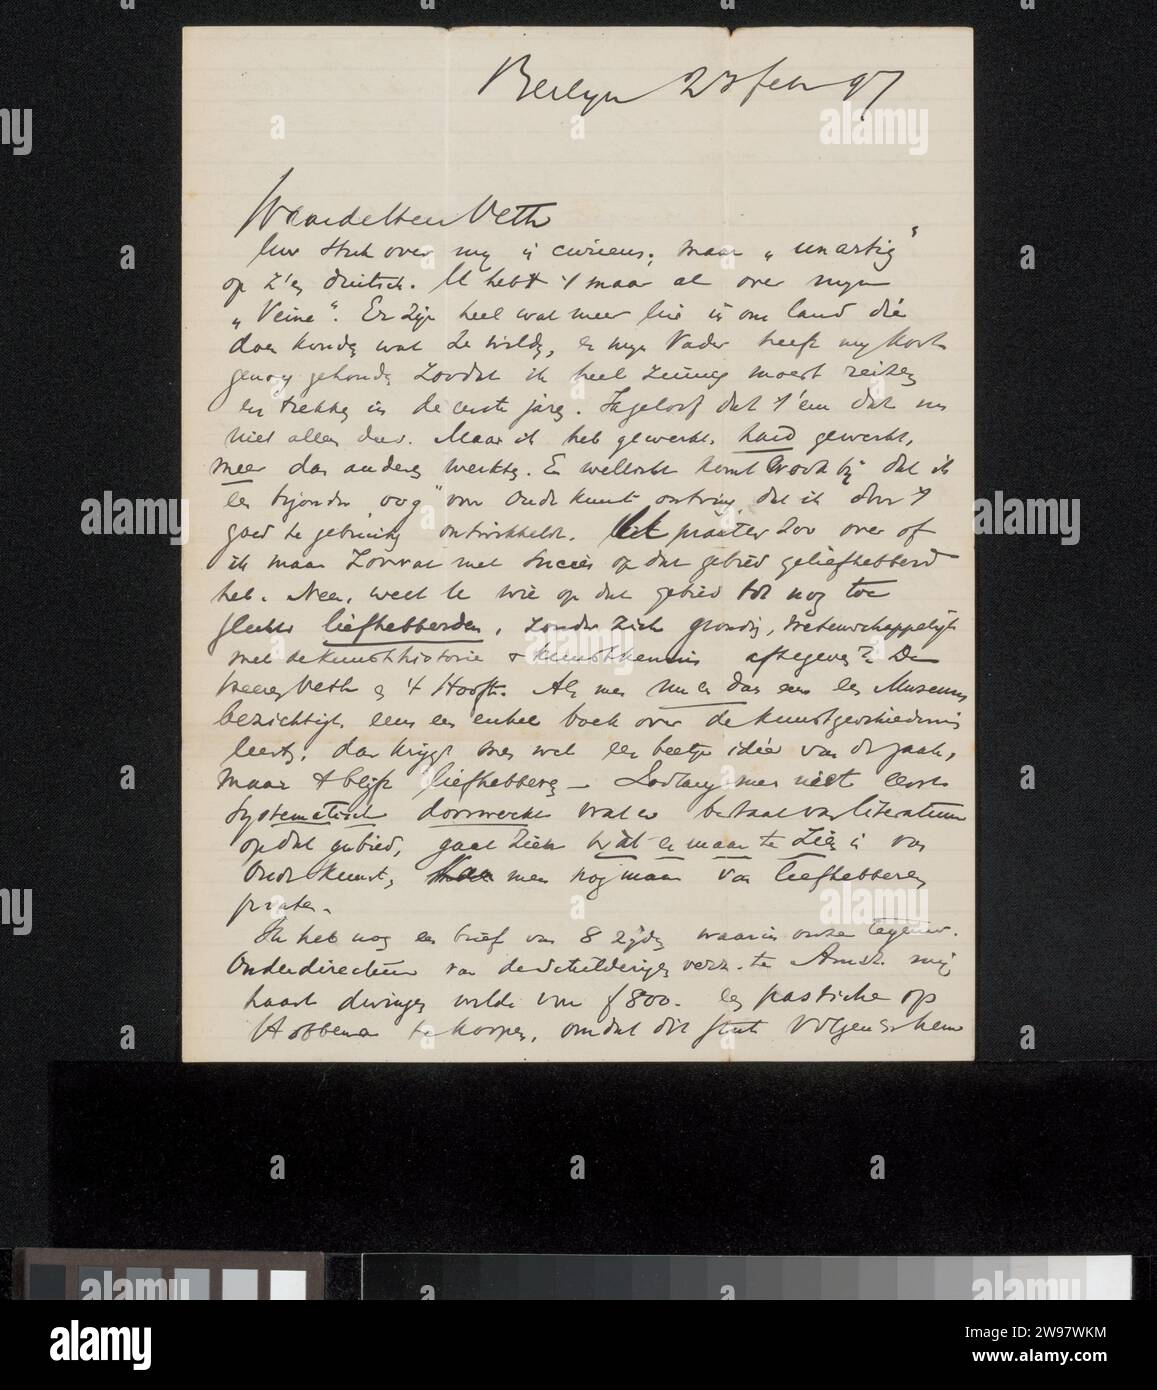 Berlyn 23 febr 97
Waarde Heer Veth
Uw stuk over my is curieus; maar „unartig"
op z'n duitsch. U hebt 't maar al over myn
„Veine". Er zyn heel wat meer lui in ons land die
doen konden wat ze wilden, en myn Vader heeft my kort
genoeg gehouden zoodat ik heel zuinig moest reizen
en trekken in de eerste jaren. Ingeloof dat 't 'em dat nu
niet alleen doet. Maar ik heb gewerkt, hard gewerkt,
meer dan anderen werkten. En wellicht komt er ook bij dat ik
een byzonder „oog" voor Oude Kunst ontving, dat ik door 't
goed te gebruiken ontwikkelde. U praat er zoo over of
ik maar zoowat met succes op dat gebied geliefhebberd
heb. Neen, weet U wie op dat gebied tot nog toe
slechts liefhebberden, zonder zich grondig, wetenschappelijk
met de kunsthistorie & kunstkennis aftegeven? De
heeren Veth en 't Hooft. Als men nu en dan eens een Museum
bezichtigt, eens een enkel boek over de kunstgeschiedenis
leest, dan krijgt men wel een beetje idée van de zaak,
maar 't blyft liefhebberen — Zoolang men niet eerst
systematisch doorwerkt wat er bestaat van literatuur
op dat gebied, gaat zien wat er maar te zien is van
Oude Kunst, kan men nog maar van liefhebberen
praten.
Ik heb nog een brief van 8 zyden waarin onze tegenw.
Onderdirecteur van de Schilderijen verz. te Amst. mij
haast dwingen wilde om f 800.- een pastiche op
Hobbema te koopen, omdat dit stuk volgens hem
alamy
alamy
alamy
alamy
alamy
alamy
alamy
alamy
Image ID: 2W97WKM
www.alamy.com